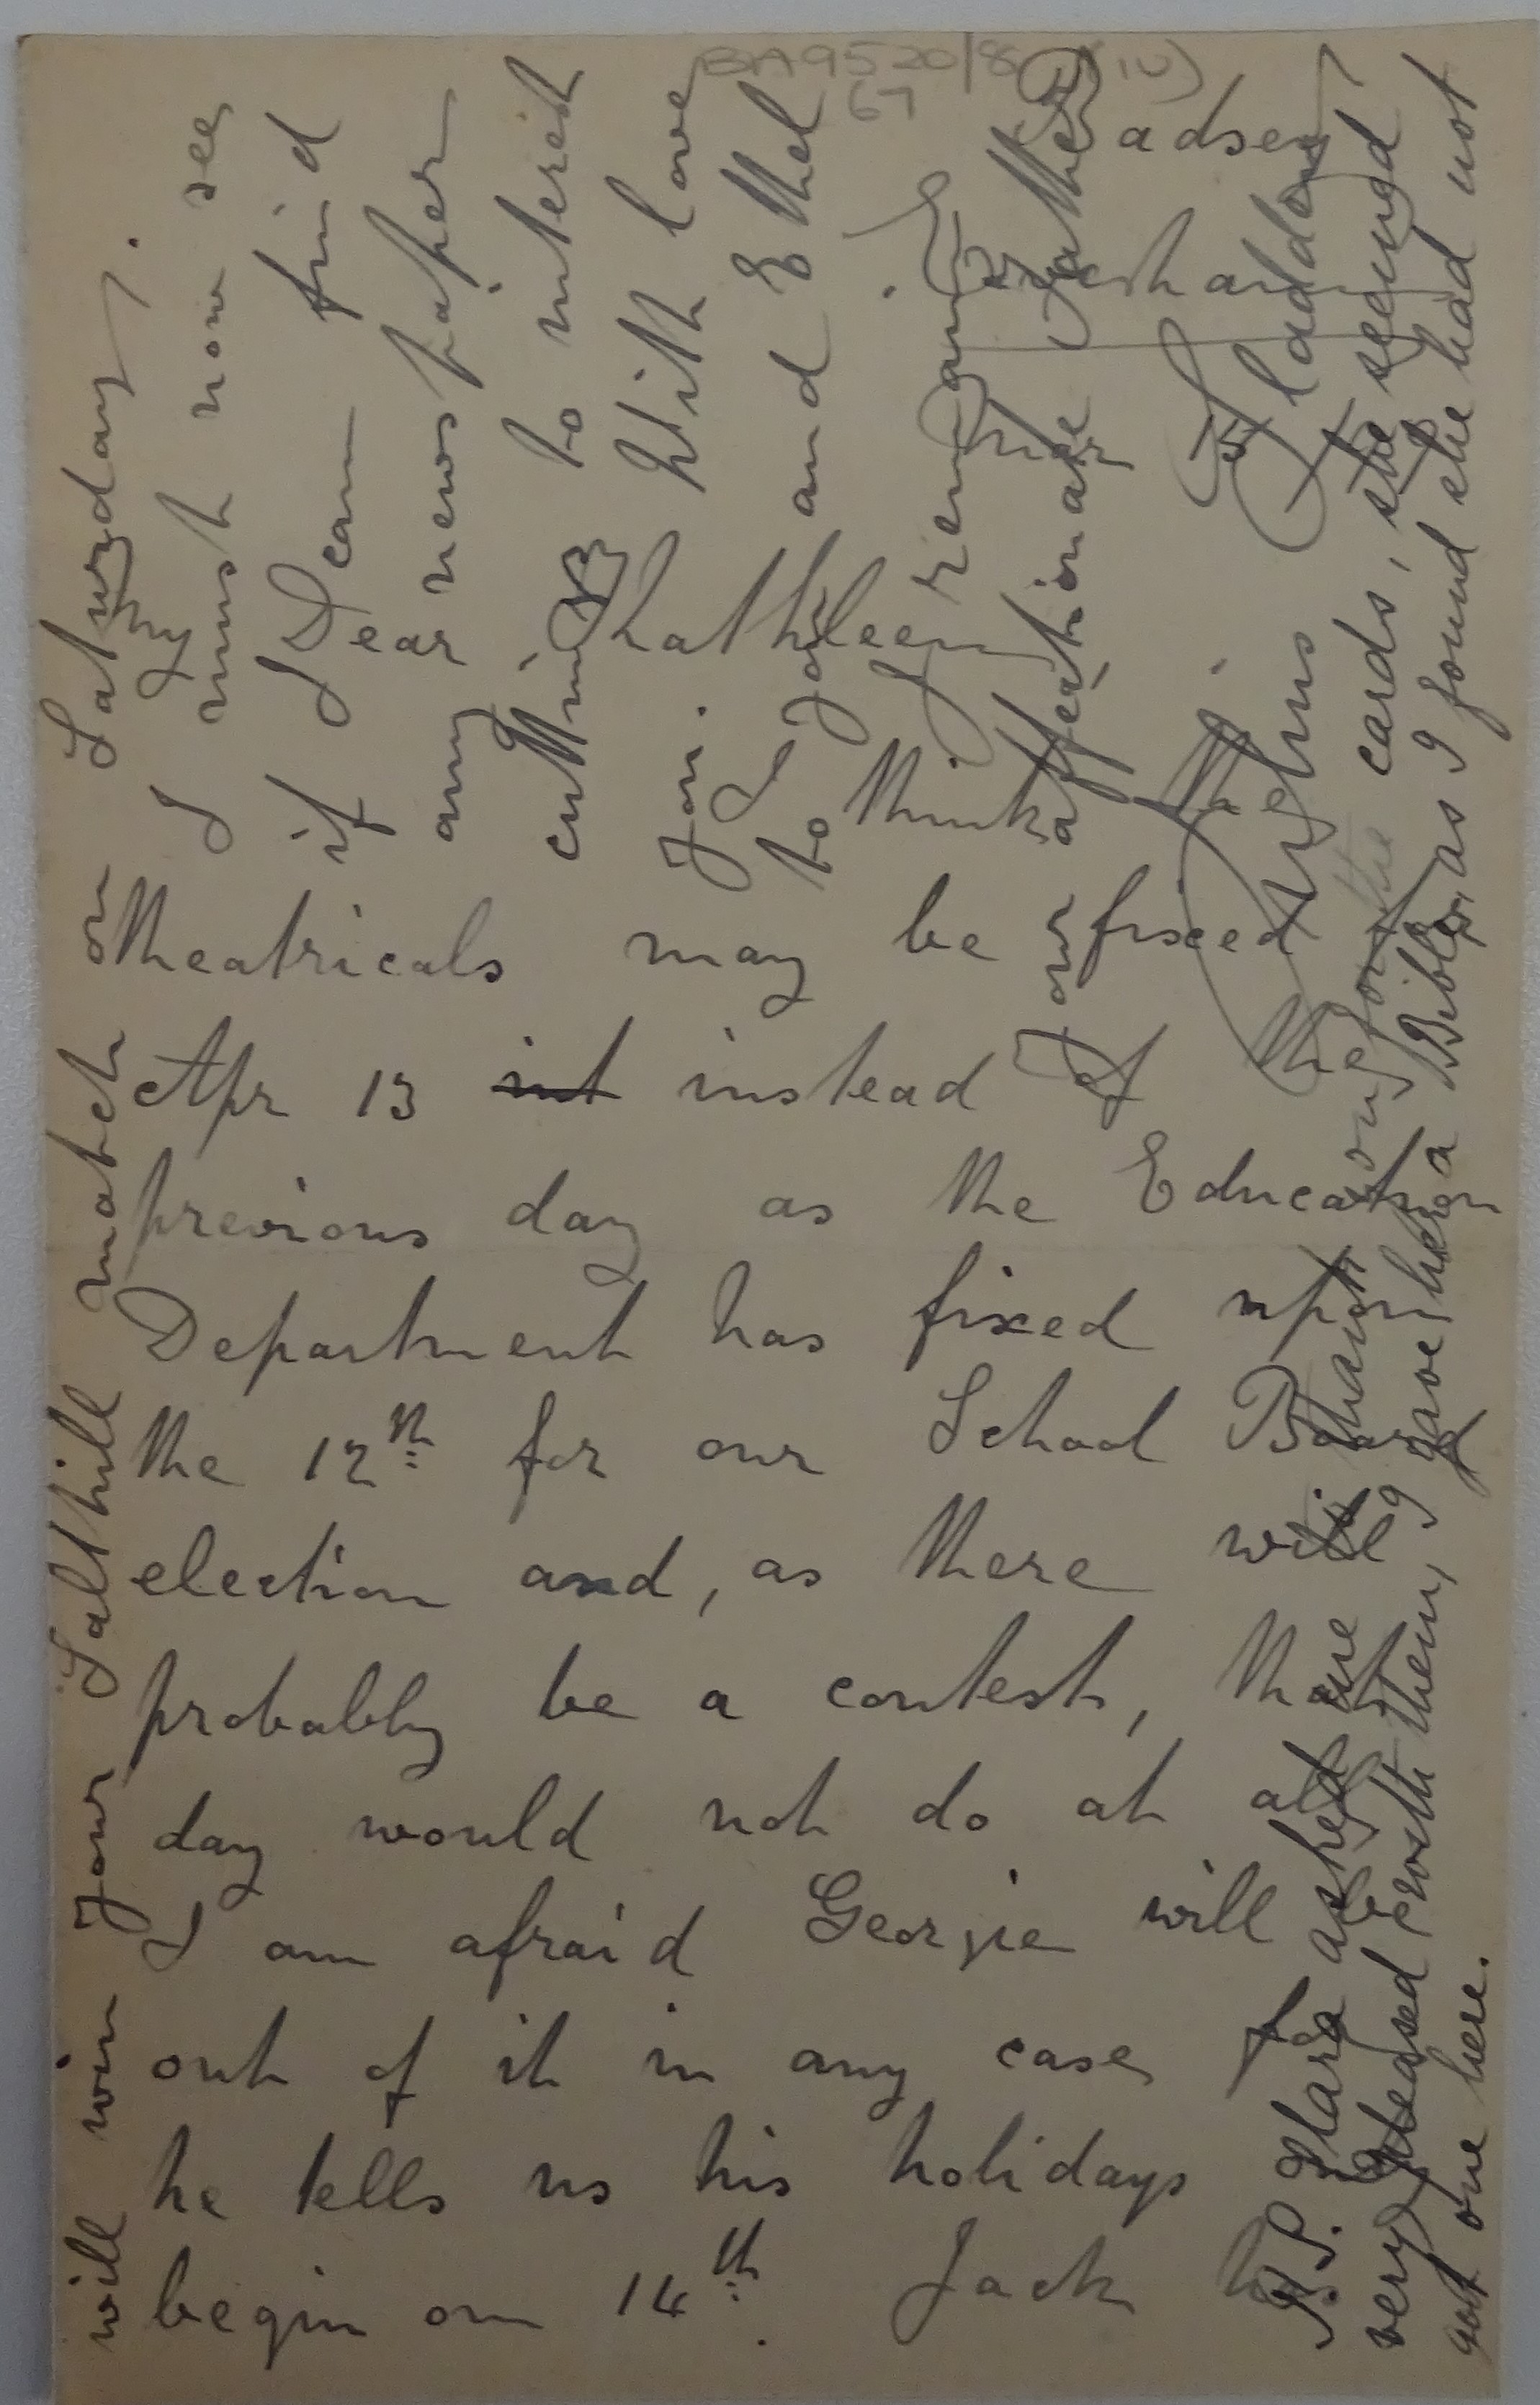 BA9520/8 (iv)
67
Badsey
Evesham
My
Dear
Kathleen
I to think the
theatricals may be fixed for
Apr 13 int instead of the
previous day as the Educatn
Department has fixed upon
the 12th for our School Board
election and, as there will
probably be a contest, that
day would not do at all
I am afraid Georgie will be
out of it in any case for
he tells us his holidays
begin on 14th. Jack has
will win your Salthill match on Saturday.
I must now see
if I can find
any newspaper
cuttings to interest
you. With love
to and Ethel
I remain
Your affectionate Father
Julius Sladden
P.S. Clara asked me to thank you for the cards, she seemed
very pleased with them, I gave her a Bible, as I found she had not
got one here.